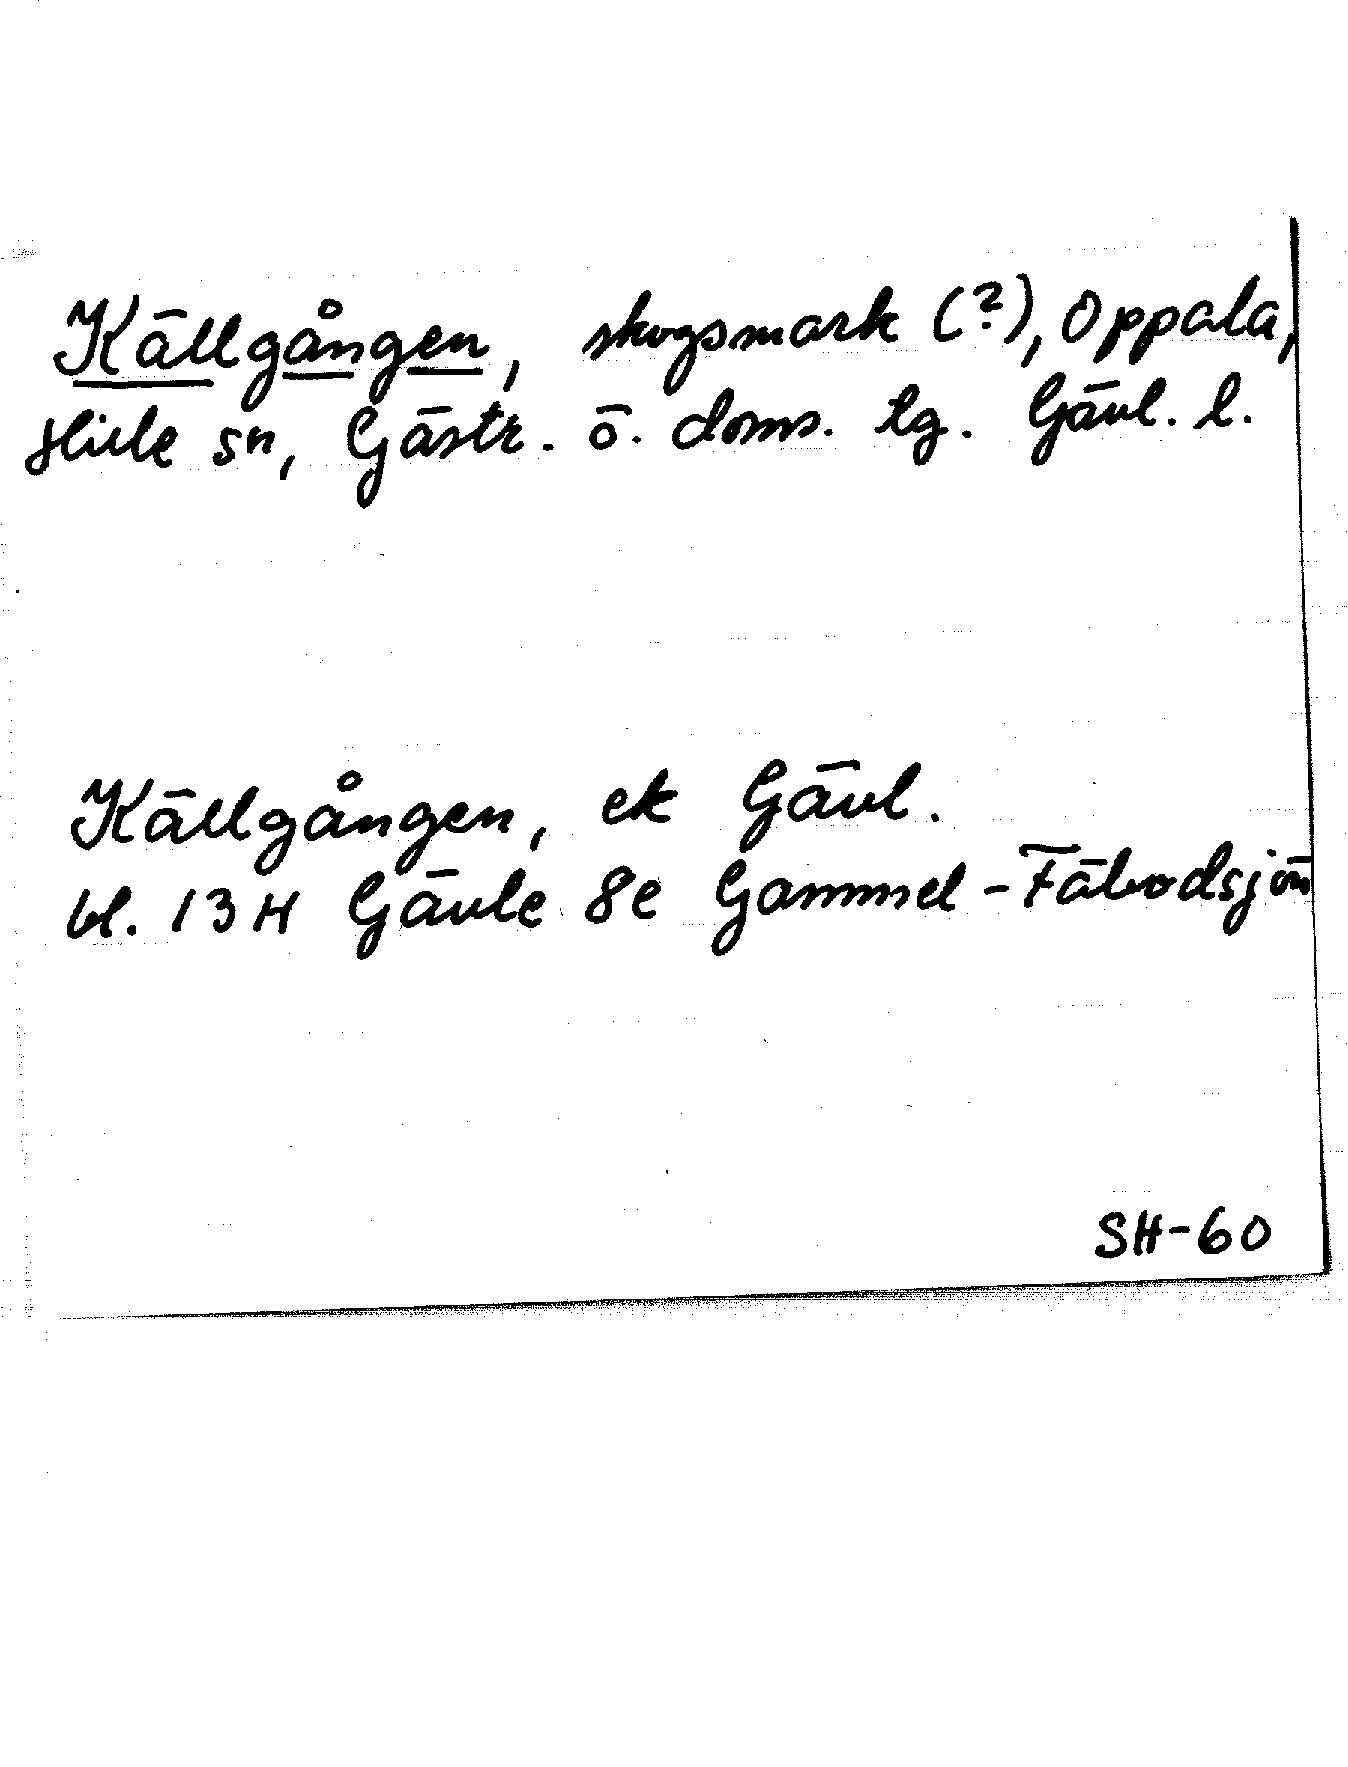 Källgången, skogsmark (?), Oppala,
Hille sn, Gästr. ö. doms. tg. Gävl. l.
Källgången, ek Gävl.
bl. 13 H Gävle 8e Gammel-Fäbodsjön
SH-60